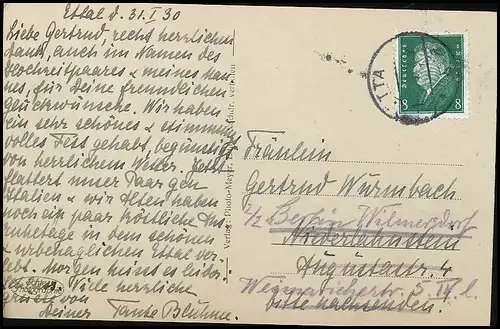 Ettal d. 31.I.30
Liebe Gertrud, recht herrlichen
Dank, auch im Namen des
Hochzeitpaares & meines Man-
nes, für Deine freundlichen
Glückwünsche. Wir haben
ein sehr schönes & stimmung
volles Fest gehabt, begünstigt
von herrlichem Wetter. Jetzt
flattert unser Paar gen
Italien & wir Alten haben
noch ein paar köstliche Aus-
ruhetage in dem schönen
& urbehaglichen Ettal ver-
lebt. Morgen muss es leider
Viele herzliche
von
Deiner Tante Blühme.
Verlag: Photo-Meyer
8 8
Fräulein
Gertrud Wurmbach
Berlin Wilmersdorf
Niederlahnstein
Augustastr. 4
5 IV l.
bitte nachsenden.